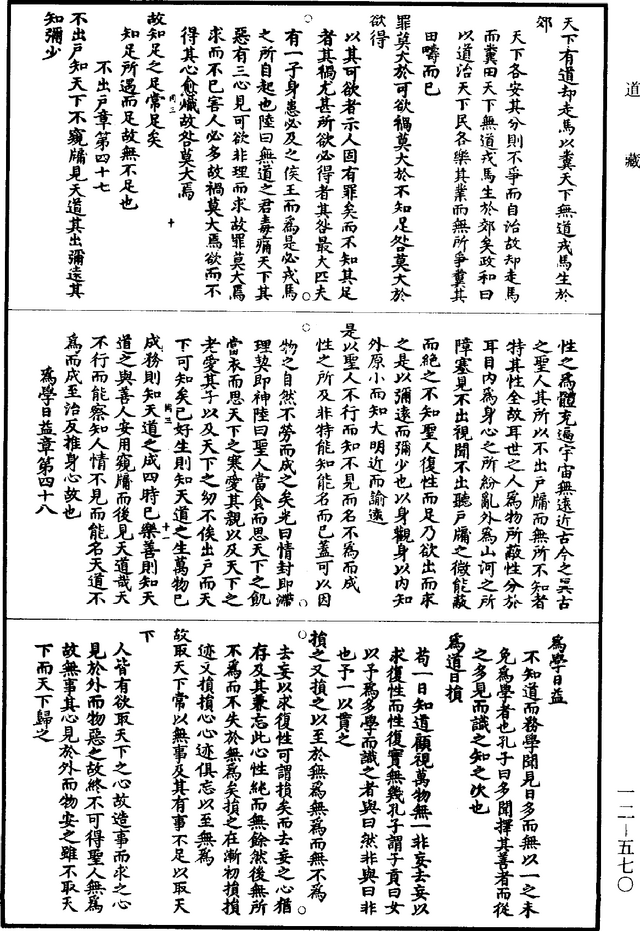 道藏
天下有道却走馬以糞天下無道戎馬生於
郊
天下各安其分則不爭而自治故却走馬
而糞田天下無道戎馬生於郊矣政和曰
以道治天下民各樂其業而無所爭糞其
田疇而已
罪莫大於可欲禍莫大於不知足咎莫大於
欲得
以其可欲者示人固有罪矣而不知其足
者其禍尤甚所欲必得者其咎最大匹夫
有一于身患必及之侯王而為是必戎馬
之所自起也陸曰無道之君毒痡天下其
惡有三心見可欲非理而求故罪莫大焉
求而不已害人必多故禍莫大焉欲而不
得其心愈熾故咎莫大焉
故知足之足常足矣
知足所遇而足故無不足也
不出戶章第四十七
不出戶知天下不窺牖見天道其出彌遠其
知彌少
性之為體充遍宇宙無遠近古今之異古
之聖人其所以不出戶牖而無所不知者
特其性全故耳世之人為物所蔽性分於
耳目內為身心之所紛亂外為山河之所
障塞見不出視聞不出聽戶牖之微能蔽
而絕之不知聖人復性而足乃欲出而求
之是以彌遠而彌少也以身觀身以內知
外原小而知大明近而諭遠
是以聖人不行而知不見而名不為而成
性之所及非特能知能名而已蓋可以因
物之自然不勞而成之矣光曰情封即滯
理契即神陸曰聖人當食而思天下之飢
當衣而思天下之寒愛其親以及天下之
老愛其子以及天下之幼不俟出戶而天
下可知矣已好生則知天道之生萬物已
成務則知天道之成四時已樂善則知天
道之與善人安用窺牖而後見天道哉夫
不行而能察知人情不見而能名天道不
為而成至治反推身心故也
為學日益章第四十八
為學日益
不知道而務學聞見日多而無以一之未
免為學者也孔子曰多聞擇其善者而從
之多見而識之知之次也
為道日損
苟一日知道顧視萬物無一非妄去妄以
求復性而性復實無幾孔子謂子貢曰女
以予為多學而識之者與曰然非與曰非
也予一以貫之
損之又損之以至於無為無為而無不為
去妄以求復性可謂損矣而去妄之心猶
存及其兼忘此心性純而無餘然後無所
不為而不失於無為矣損之在漸初損損
迹又損損心心迹俱忘以至無為
故取天下常以無事及其有事不足以取天
下
人皆有欲取天下之心故造事而求之心
見於外而物惡之故終不可得聖人無為
故無事其心見於外而物安之雖不取天
下而天下歸之
一二—五七〇